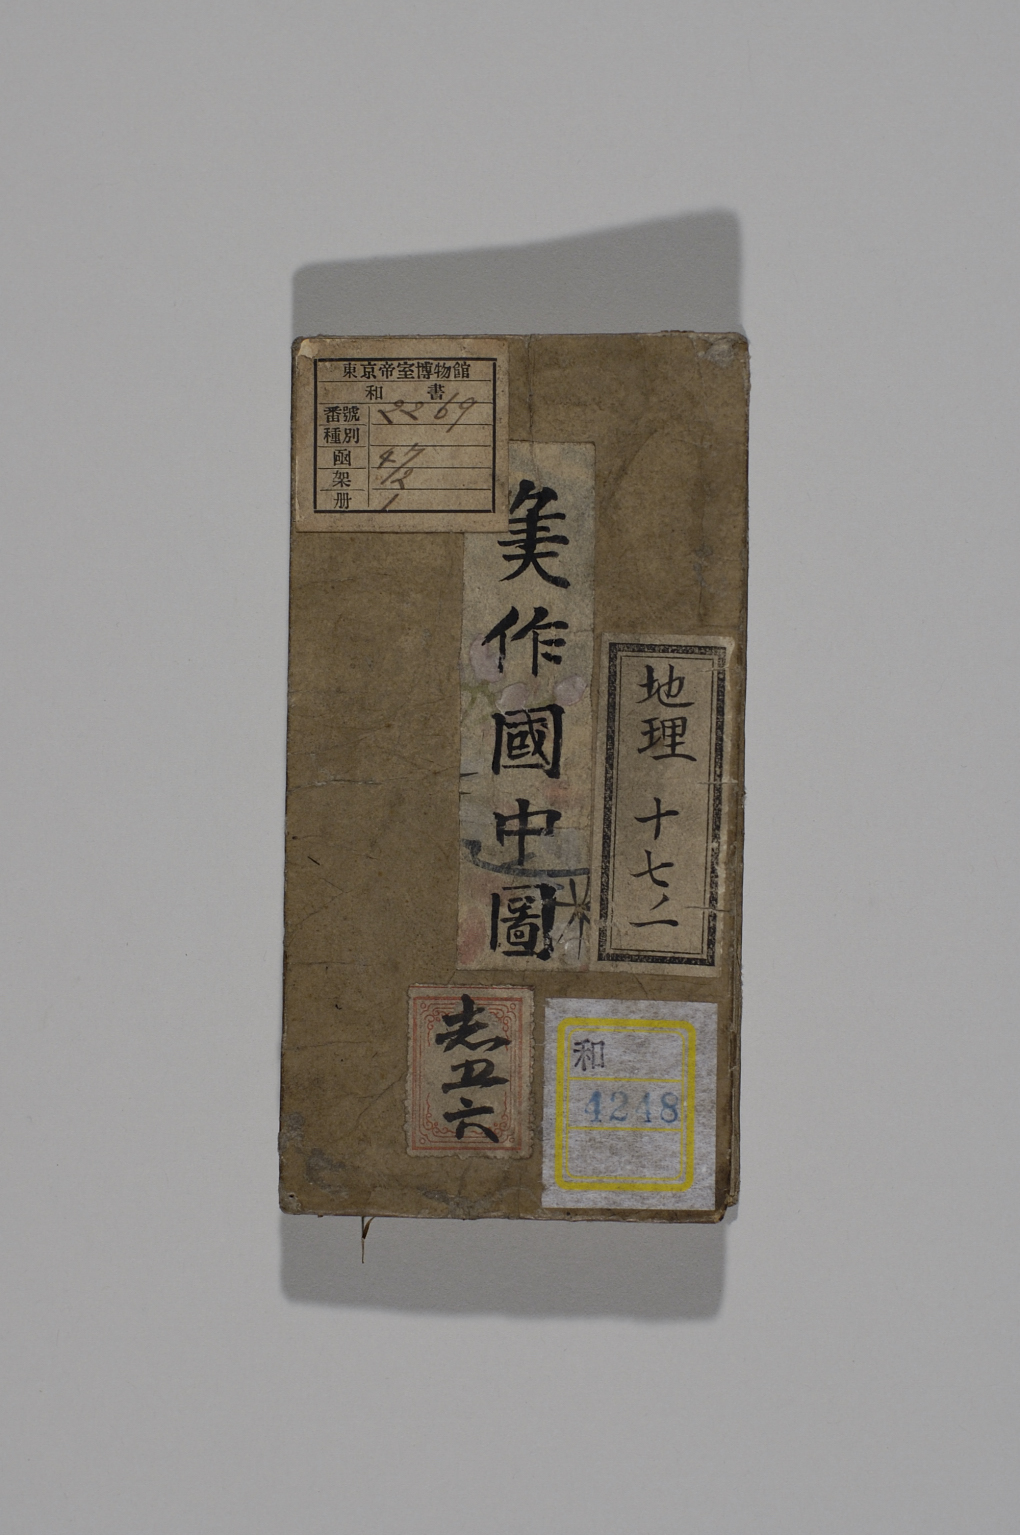 東京帝室博物館
和書
番號 2269
種別
函 47
架 12
册 1
美作國中圖
地理 十七ノ一
志五六
和
4248